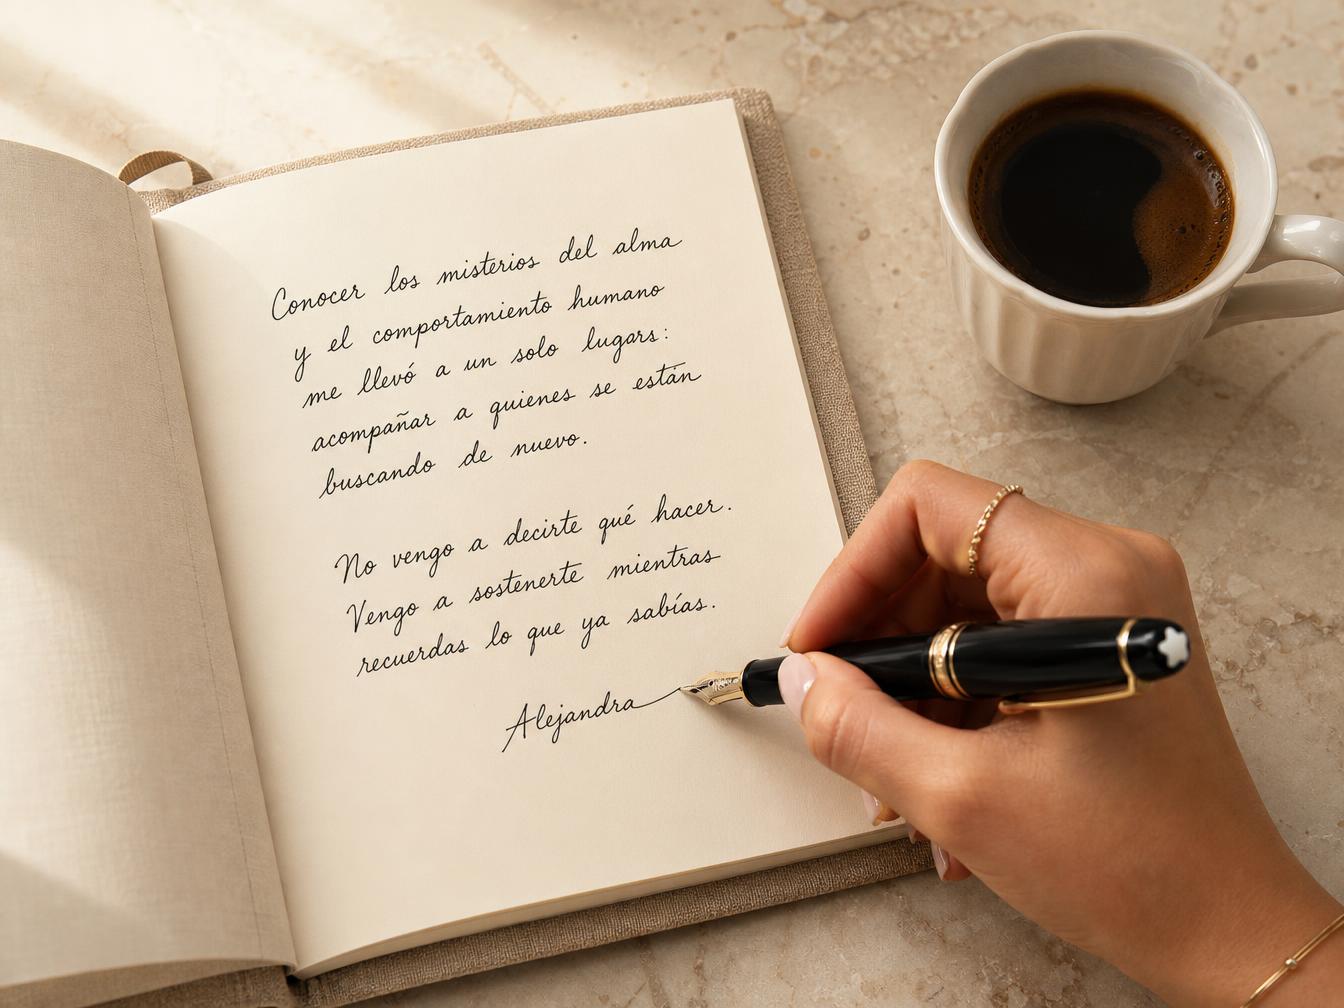 Conocer los misterios del alma
y el comportamiento humano
me llevó a un solo lugars:
acompañar a quienes se están
buscando de nuevo.
No vengo a decirte qué hacer.
Vengo a sostenerte mientras
recuerdas lo que ya sabías.
Alejandra